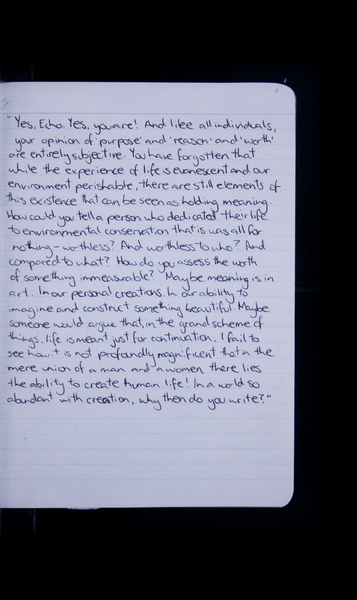 "Yes, Echo. Yes, you are! And like all individuals,
your opinion of 'purpose' and 'reason' and 'worth'
are entirely subjective. You have forgotten that
while the experience of life is evanescent and our
environment perishable, there are still elements of
this existence that can be seen as holding meaning.
How could you tell a person who dedicated their life
to environmental conservation that is was all for
nothing - worthless? And worthless to who? And
compared to what? How do you assess the worth
of something immeasurable? Maybe meaning is in
art. In our personal creations. In our ability to
imagine and construct something beautiful. Maybe
someone would argue that, in the grand scheme of
things, life is meant just for continuation. I fail to
see how it is not profoundly magnificent that in the
mere union of a man and a women there lies
the ability to create human life! In a world so
abundant with creation, why then do you write?"